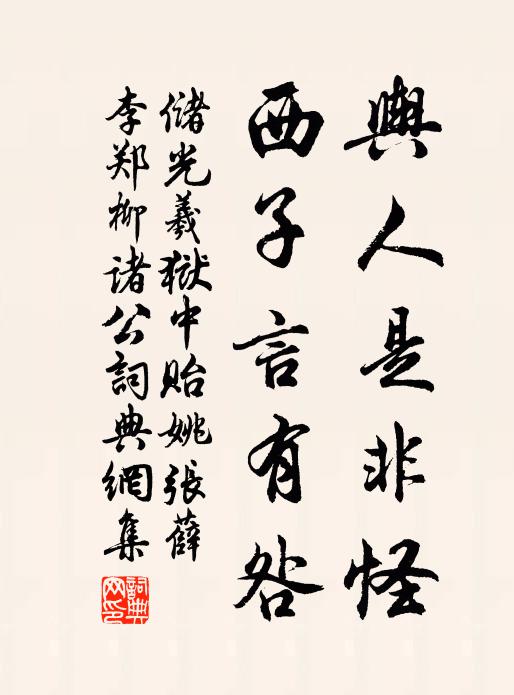 輿人是非怪
西子言有咎
儲光羲獄中貽姚張薛
李郑柳诸公詞典網集
詞典網印